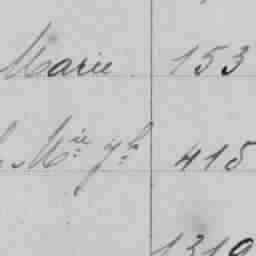 Marie 153
Mie Jh 415
1319